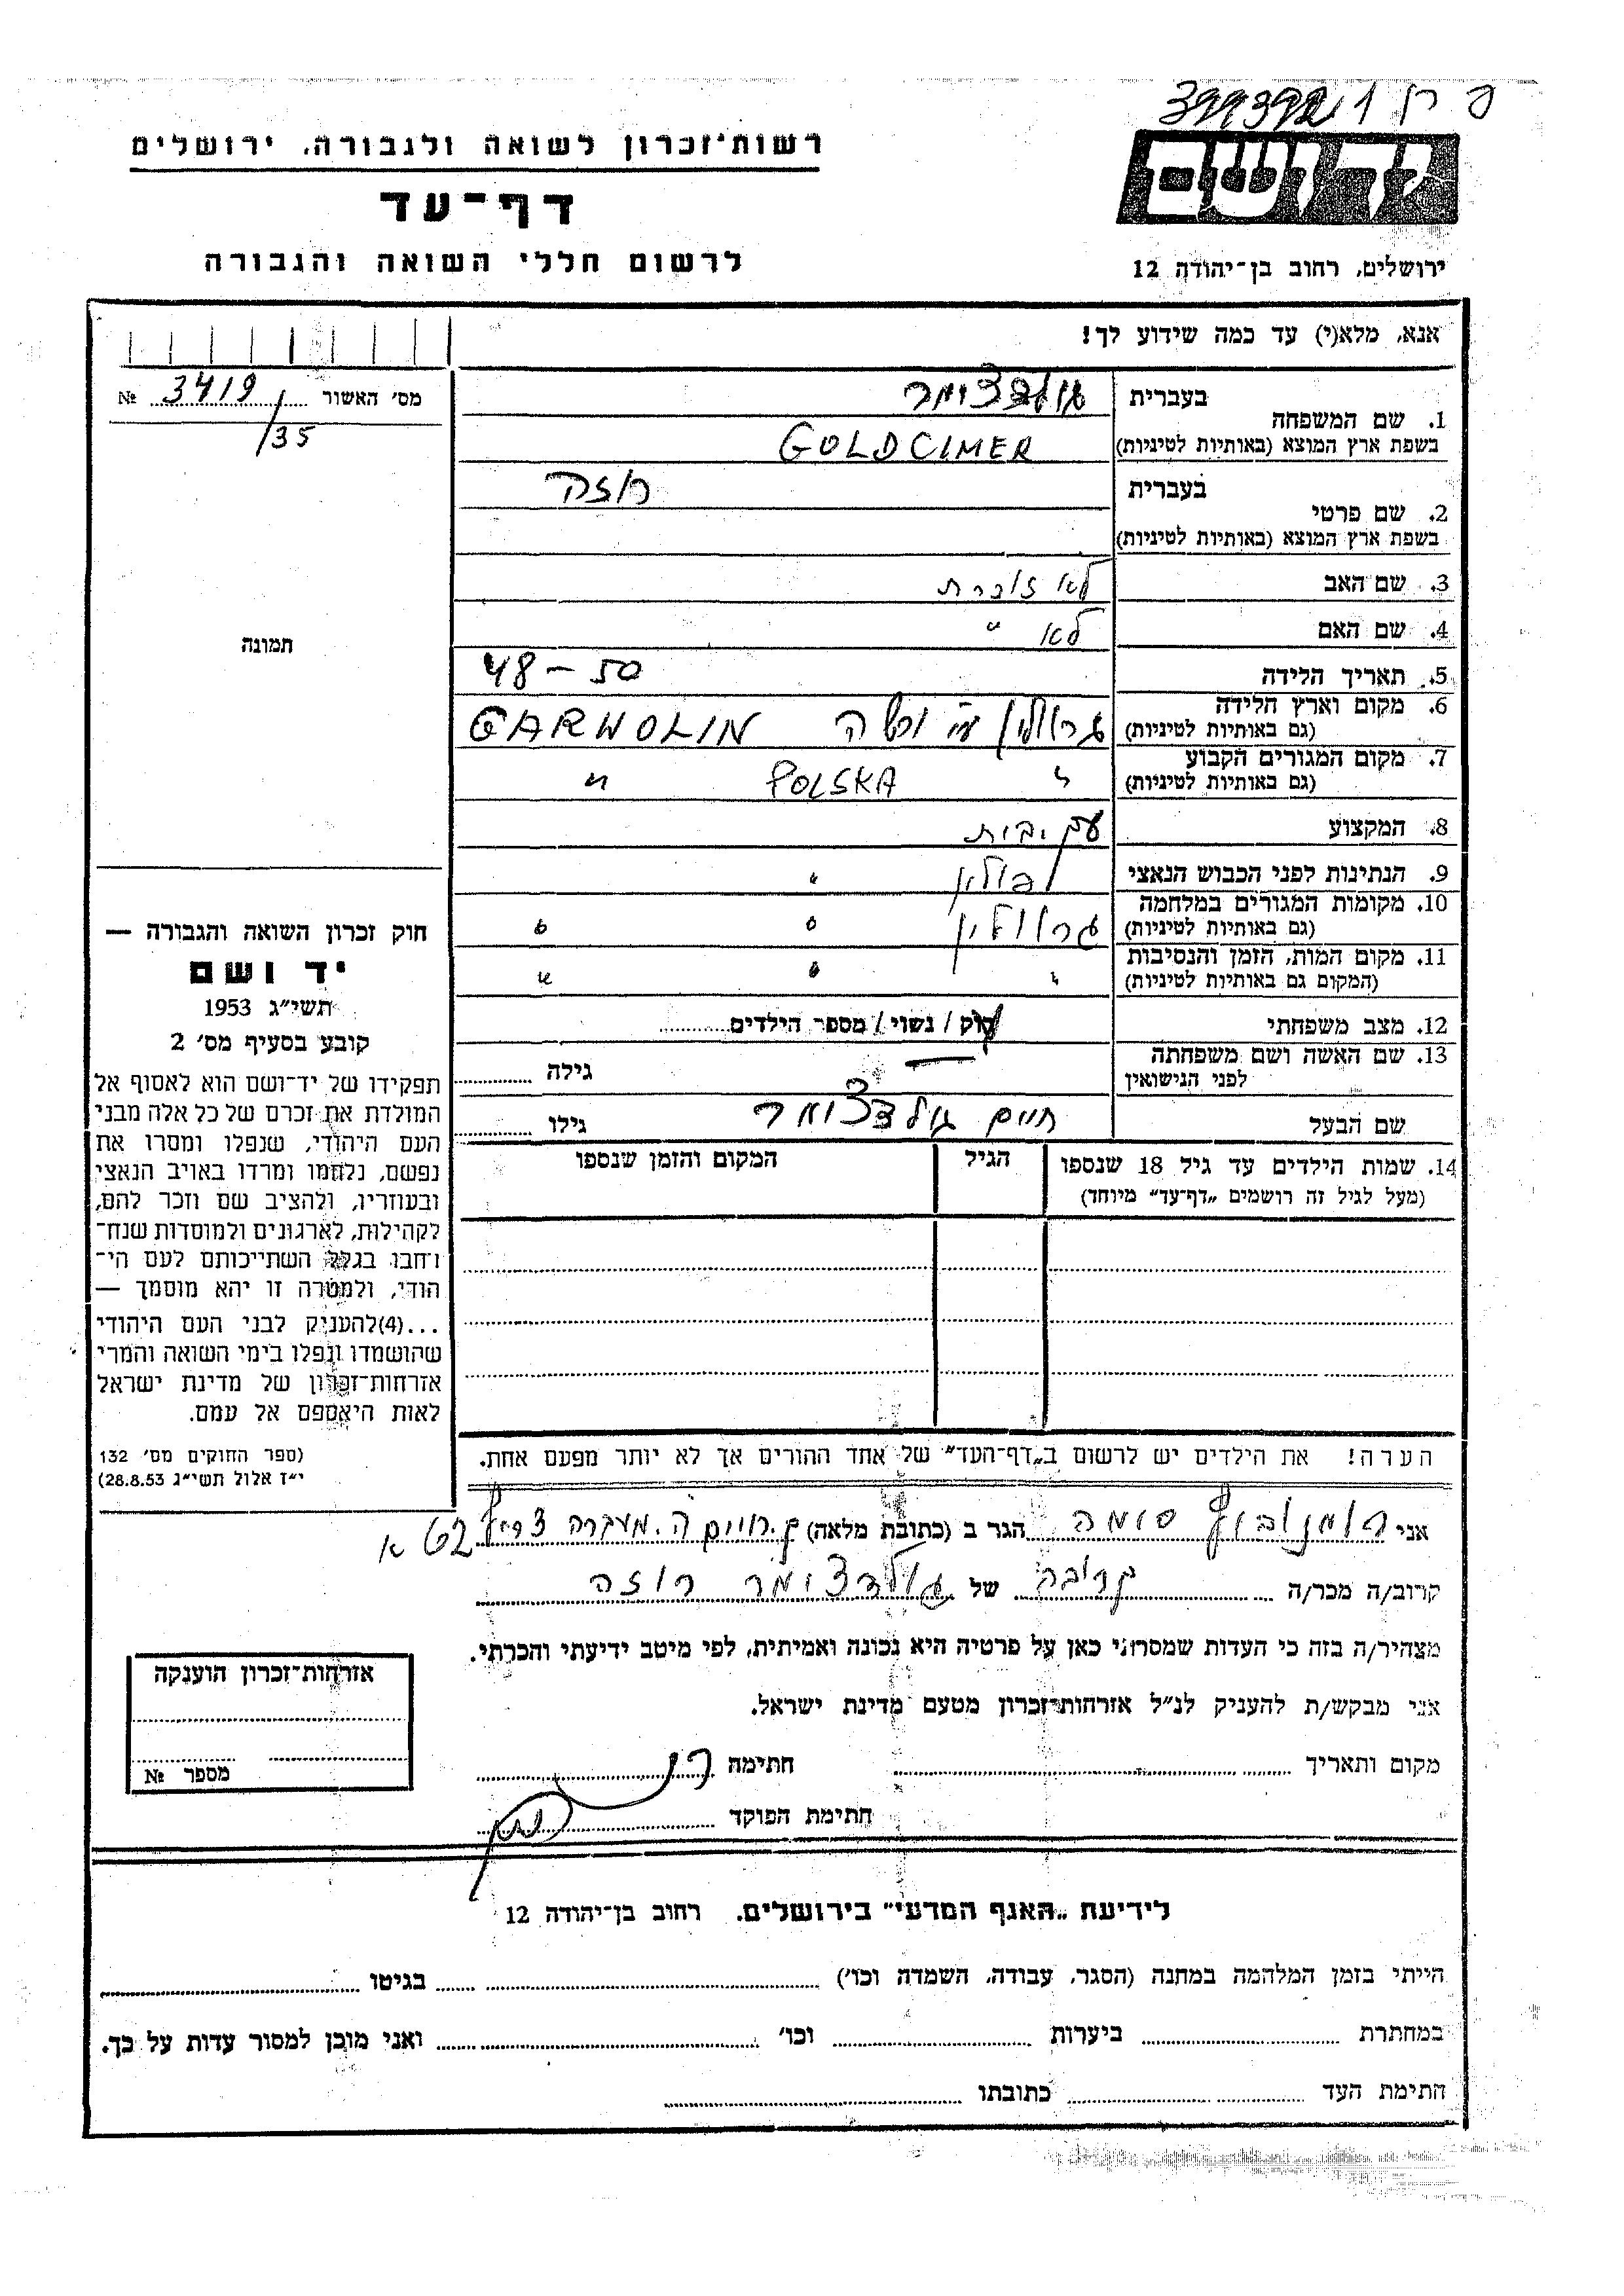 רשות־זכרון לשואה ולגבורה, ירושלים
דף־עד
לרשום חללי השואה והגבורה
ידושם
ירושלים, רחוב בן־יהודה 12
אנא, מלא(י) עד כמה שידוע לך!
מס׳ האשור 3419/35 №
1. שם המשפחה בעברית גולדצימר
בשפת ארץ המוצא (באותיות לטיניות) GOLDCIMER
2. שם פרטי בעברית רוזה
בשפת ארץ המוצא (באותיות לטיניות)
3. שם האב לא זוכרת
4. שם האם לא "
5. תאריך הלידה 48 – 50
6. מקום וארץ הלידה (גם באותיות לטיניות) גרוולין ע"י ורשה GARWOLIN
7. מקום המגורים הקבוע (גם באותיות לטיניות) " POLSKA "
8. המקצוע עק. בית
9. הנתינות לפני הכבוש הנאצי פולין "
10. מקומות המגורים במלחמה (גם באותיות לטיניות) גרוולין " "
11. מקום המות, הזמן והנסיבות (המקום גם באותיות לטיניות) " " "
12. מצב משפחתי רוק / נשוי / מספר הילדים
13. שם האשה ושם משפחתה לפני הנישואין גילה
שם הבעל חיים גולדצימר גילו
14. שמות הילדים עד גיל 18 שנספו הגיל המקום והזמן שנספו
(מעל לגיל זה רושמים „דף־עד" מיוחד)
הערה! את הילדים יש לרשום ב„דף־העד" של אחד ההורים אך לא יותר מפעם אחת.
תמונה
חוק זכרון השואה והגבורה —
יד ושם
תשי״ג 1953
קובע בסעיף מס׳ 2
תפקידו של יד־ושם הוא לאסוף אל
המולדת את זכרם של כל אלה מבני
העם היהודי, שנפלו ומסרו את
נפשם, נלחמו ומרדו באויב הנאצי
ובעוזריו, ולהציב שם וזכר להם,
לקהילות, לארגונים ולמוסדות שנח־
רחבו בגלל השתייכותם לעם הי־
הודי, ולמטרה זו יהא מוסמך —
...(4)להעניק לבני העם היהודי
שהושמדו ונפלו בימי השואה והמרי
אזרחות־זכרון של מדינת ישראל
לאות היאספם אל עמם.
(ספר החוקים מס׳ 132
י״ז אלול תשי״ג 28.8.53)
אני רומנוביץ סומה הגר ב (כתובת מלאה) ק. חיים ה. מעברה צריף 62 א
קרוב/ה מכר/ה קרובה של גולדצימר רוזה
מצהיר/ה בזה כי העדות שמסרתי כאן על פרטיה היא נכונה ואמיתית, לפי מיטב ידיעתי והכרתי.
אני מבקש/ת להעניק לנ״ל אזרחות־זכרון מטעם מדינת ישראל.
מקום ותאריך חתימה
חתימת הפוקד
אזרחות־זכרון הוענקה
מספר №
לידיעת „האגף המדעי" בירושלים, רחוב בן־יהודה 12
הייתי בזמן המלחמה במחנה (הסגר, עבודה, השמדה וכו׳) בגיטו
במחתרת ביערות וכו׳ ואני מוכן למסור עדות על כך.
חתימת העד כתובתו